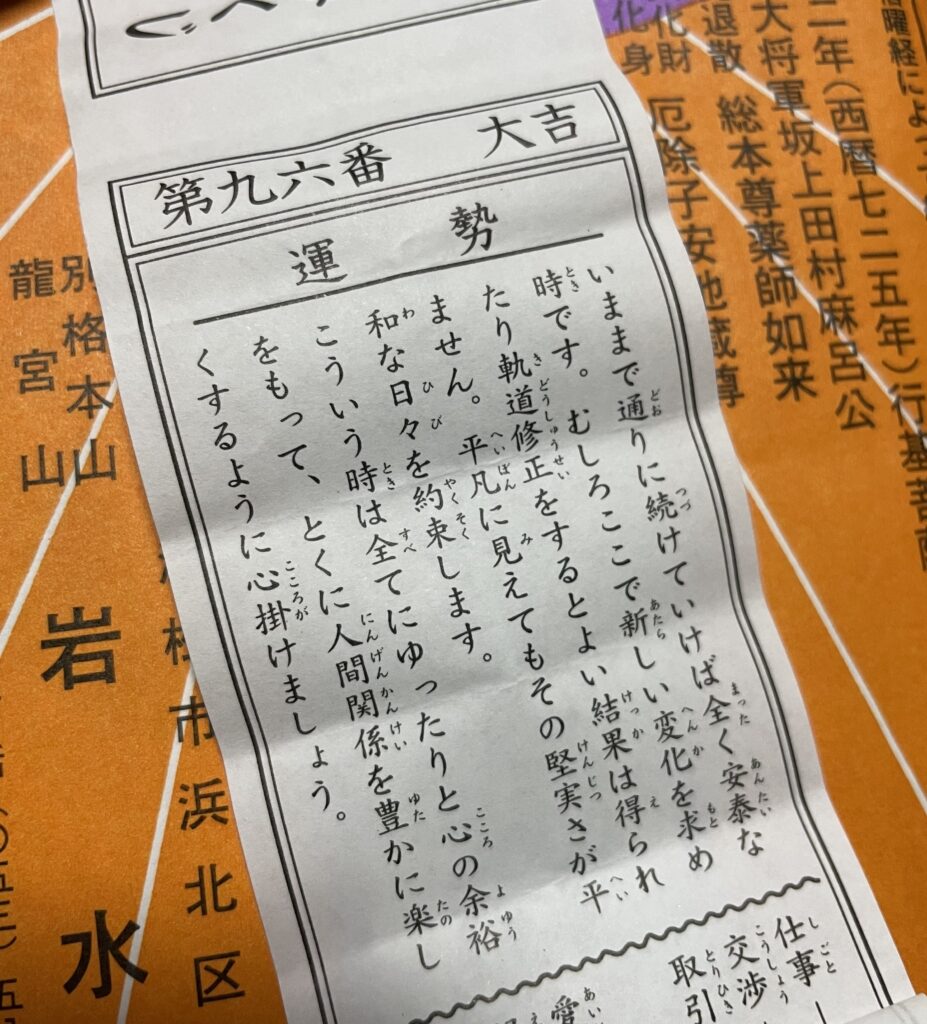 第九六番　大吉
運勢
いままで通りに続けていけば全く安泰な
時です。むしろここで新しい変化を求め
たり軌道修正をするとよい結果は得られ
ません。平凡に見えてもその堅実さが平
和な日々を約束します。
こういう時は全てにゆったりと心の余裕
をもって、とくに人間関係を豊かに楽し
くするように心掛けましょう。
仕事
交渉
取引
二年（西暦七二五年）行基菩薩
大将軍坂上田村麻呂公
退散　総本尊薬師如来
化財　厄除子安地蔵尊
化身
別格本山
龍宮山
岩水
市浜北区